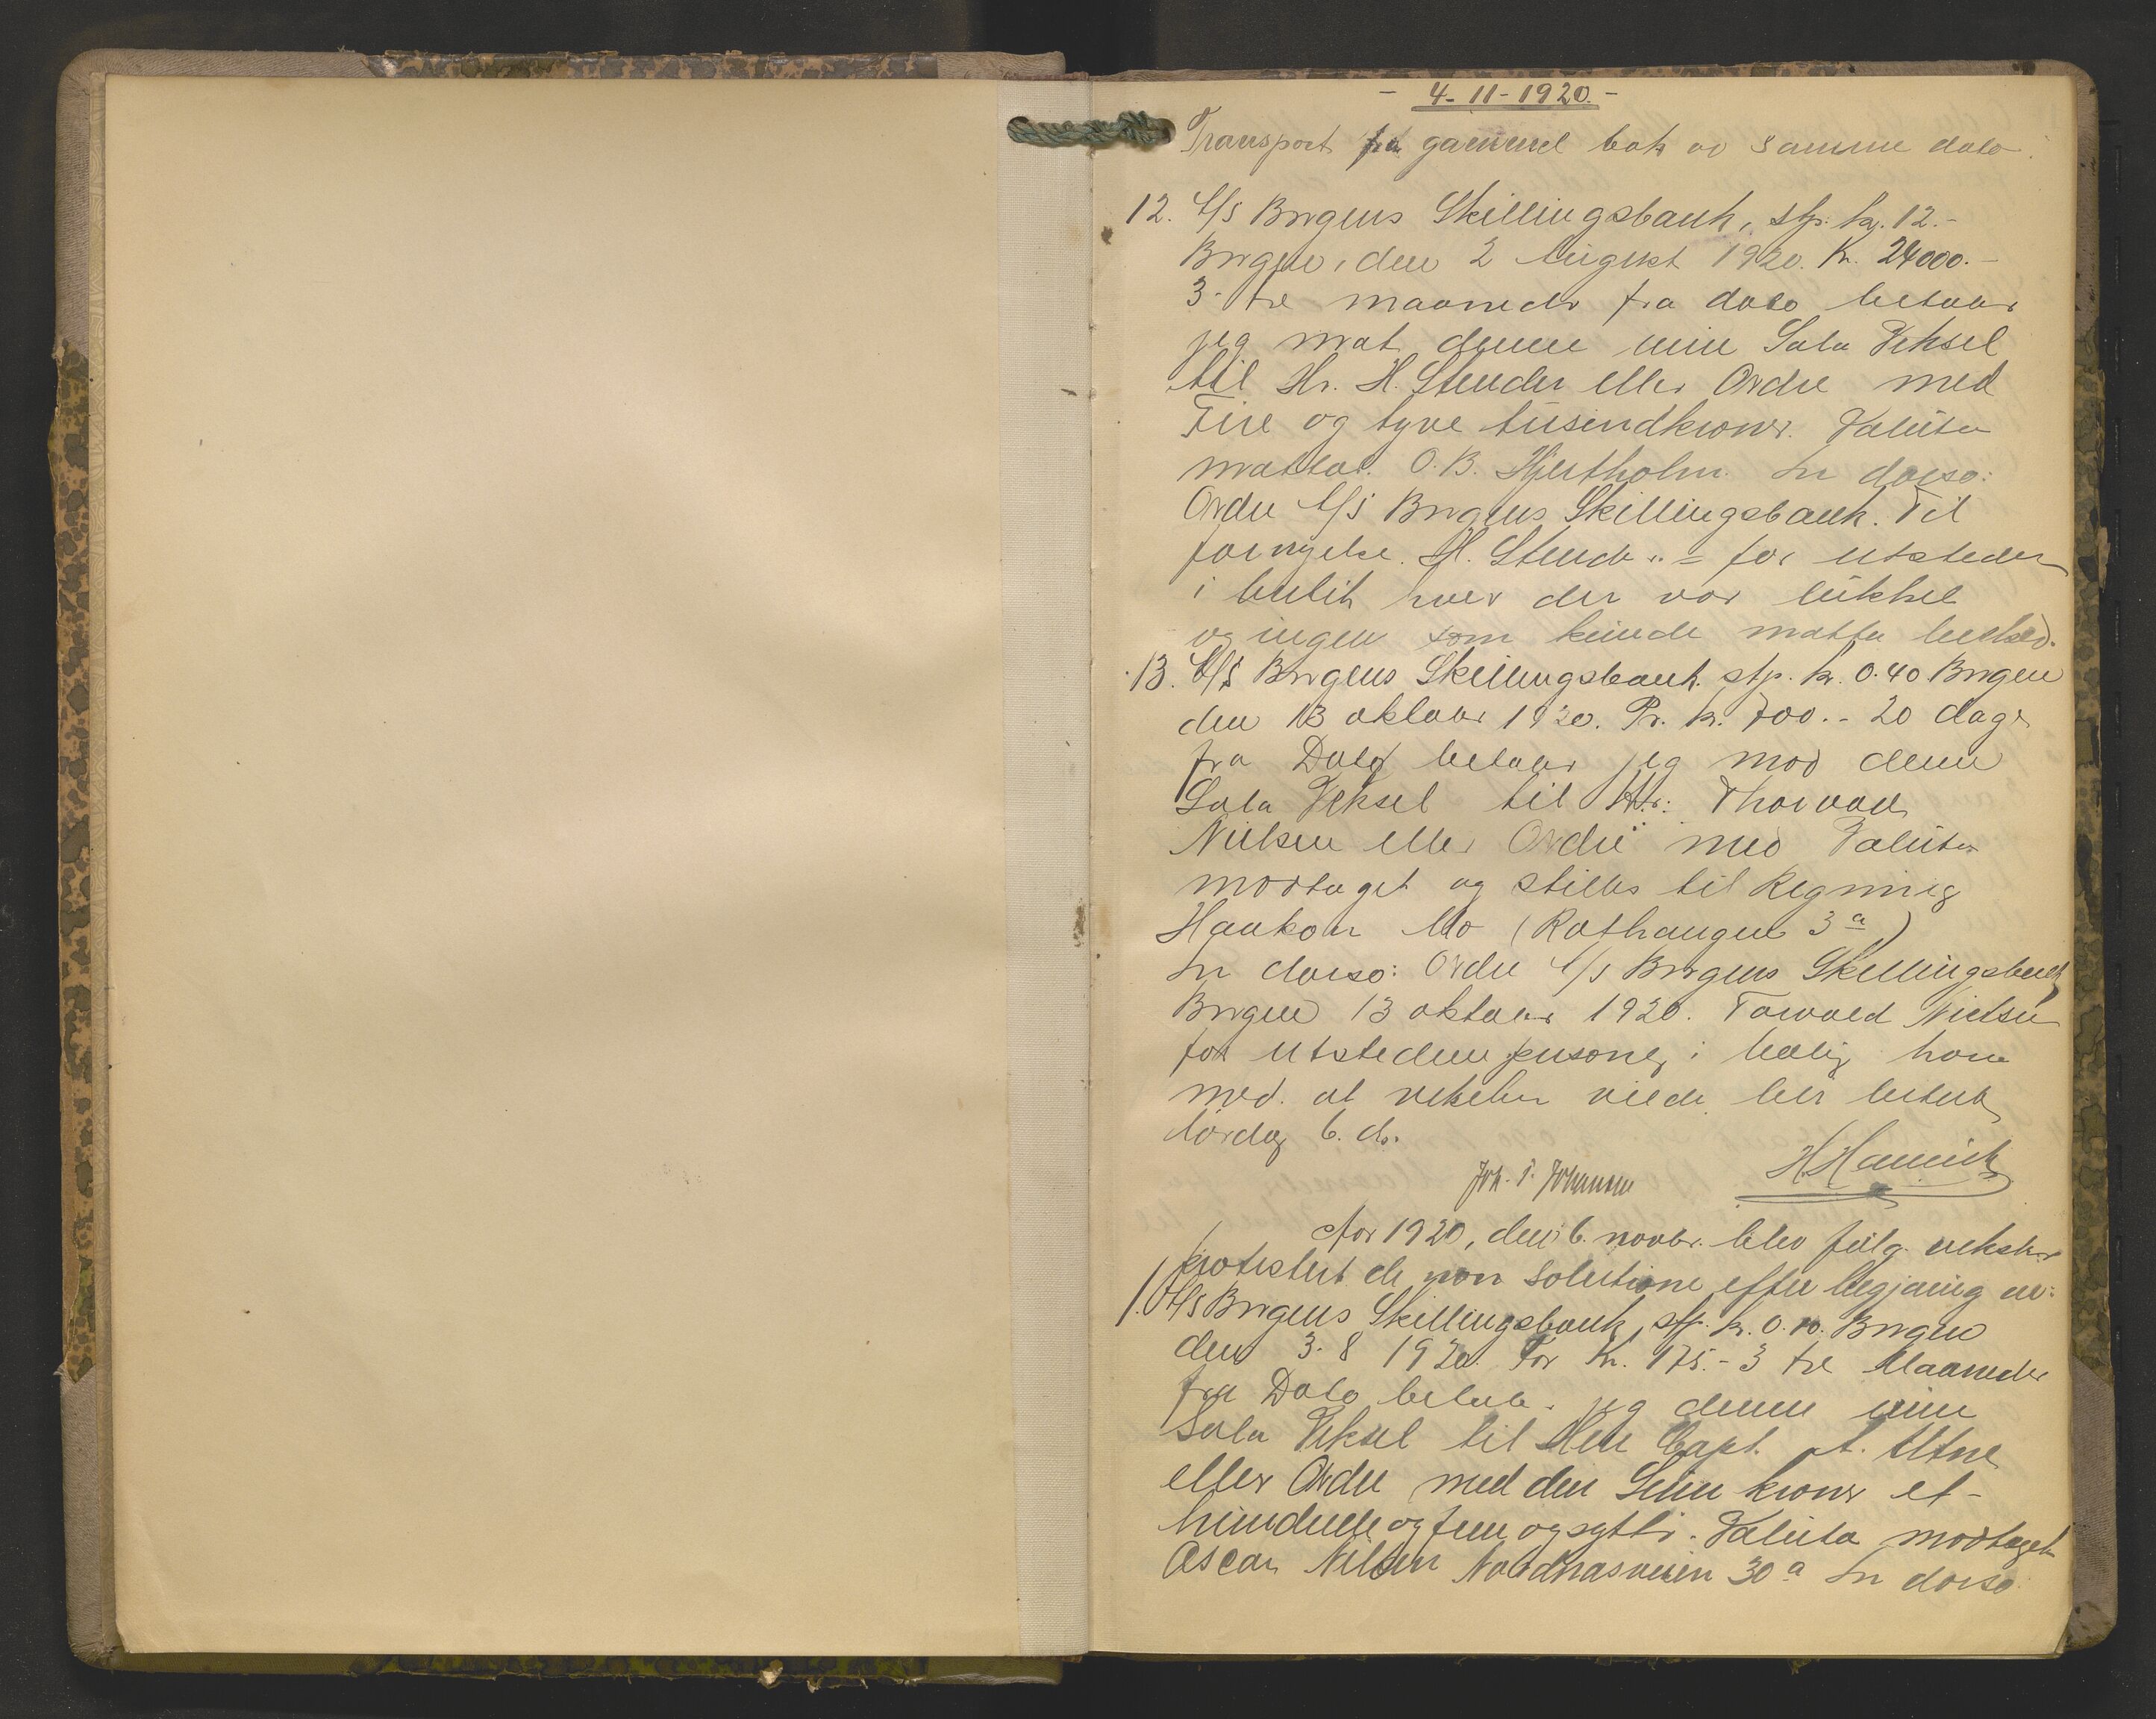 - 4-11-1920. -
Transport fra gammel bok av samme dato.
12. A/S Bergens Skillingsbank, stp. kr. 12.-
Bergen, den 2 August 1920. Kr. 24000.-
3- tre maaneder fra dato betaler
jeg mot denne min Sola Veksel
til Hr. H. Stender eller Ordre med
Fire og tyve tusendkroner. Valuta
mottat. O.B. Hjertholm. In dorso:
Ordre A/S Bergens Skillingsbank. Til
fornyelse. H. Stender = for utsteder
i butik hver der var lukket
og ingen som kunde motta beskед.
13. A/S Bergens Skillingsbank. stp. kr. 0.40 Bergen
den 13 oktober 1920. Pr. kr. 700.- 20 dage
fra Dato betaler jeg mod denne
Sola Veksel til Hr. Thorvald
Nielsen eller Ordre med Valuta
mottaget og stilles til Regning
Haakon Mo (Rothaugen 3 a)
In dorso: Ordre A/S Bergens Skillingsbank
Bergen 13 oktober 1920. Torvald Nielsen
for utstederen personlig i bolig hvor
med. at vekselen vilde bli betalt
lørdag 6. ds.
Joh. P. Johansen
For 1920, den 6. novbr. blev følg. veksler
protestert de non solutione efter begjæring av:
1. A/S Bergens Skillingsbank, stp. kr. 0.10. Bergen
den 3. 8 1920. For Kr. 175.- 3 tre Maaneder
fra Dato betaler jeg denne min
Sola Veksel til Herr Capt. A. Utne
eller Ordre med den Sum kroner et-
hundrede og fem og sytti. Valuta modtaget
Oscar Nilsen Nordnæsveien 30 a In dorso: